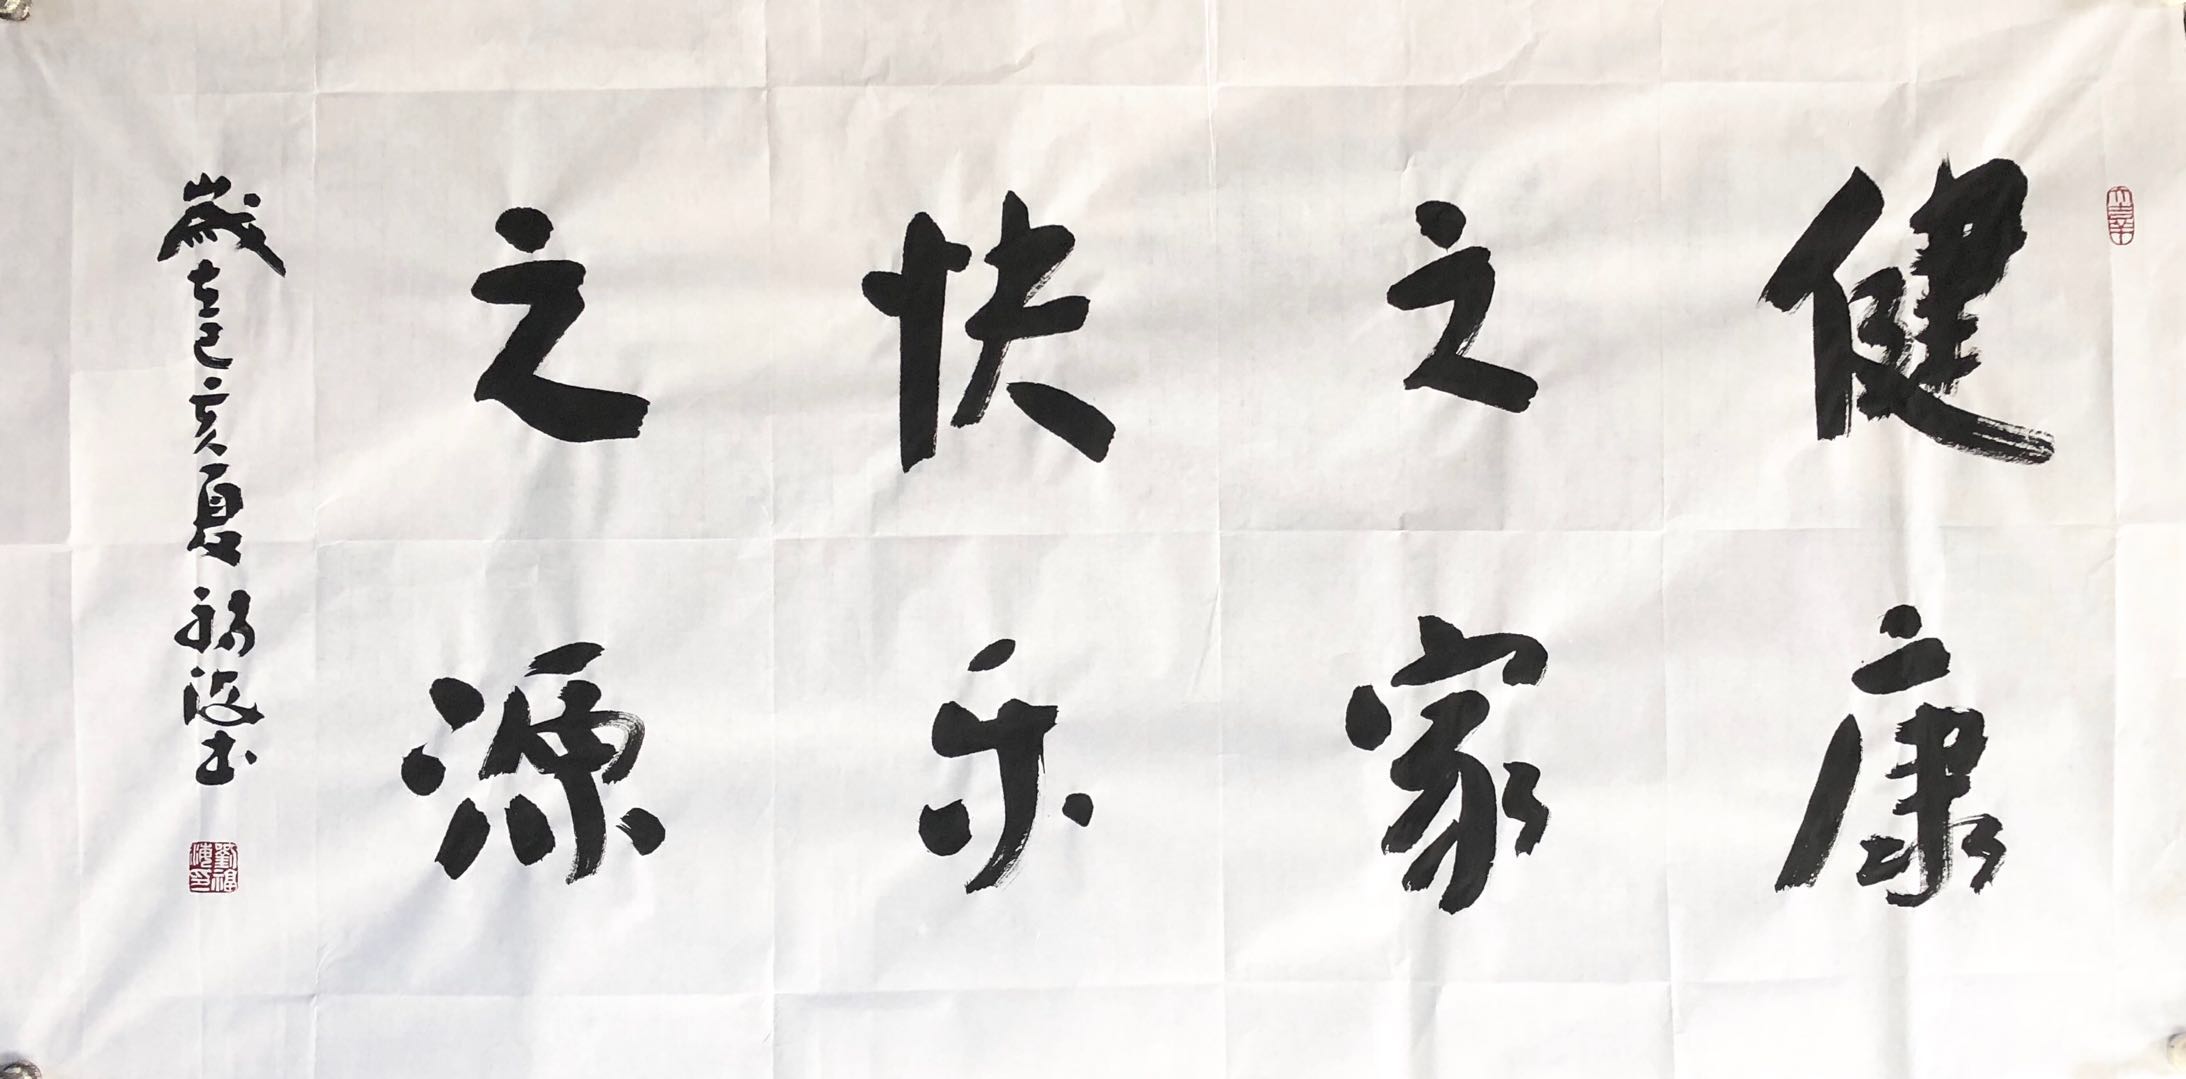 健康
之家
快乐
之源
歲在己亥夏福海书
劉福海印